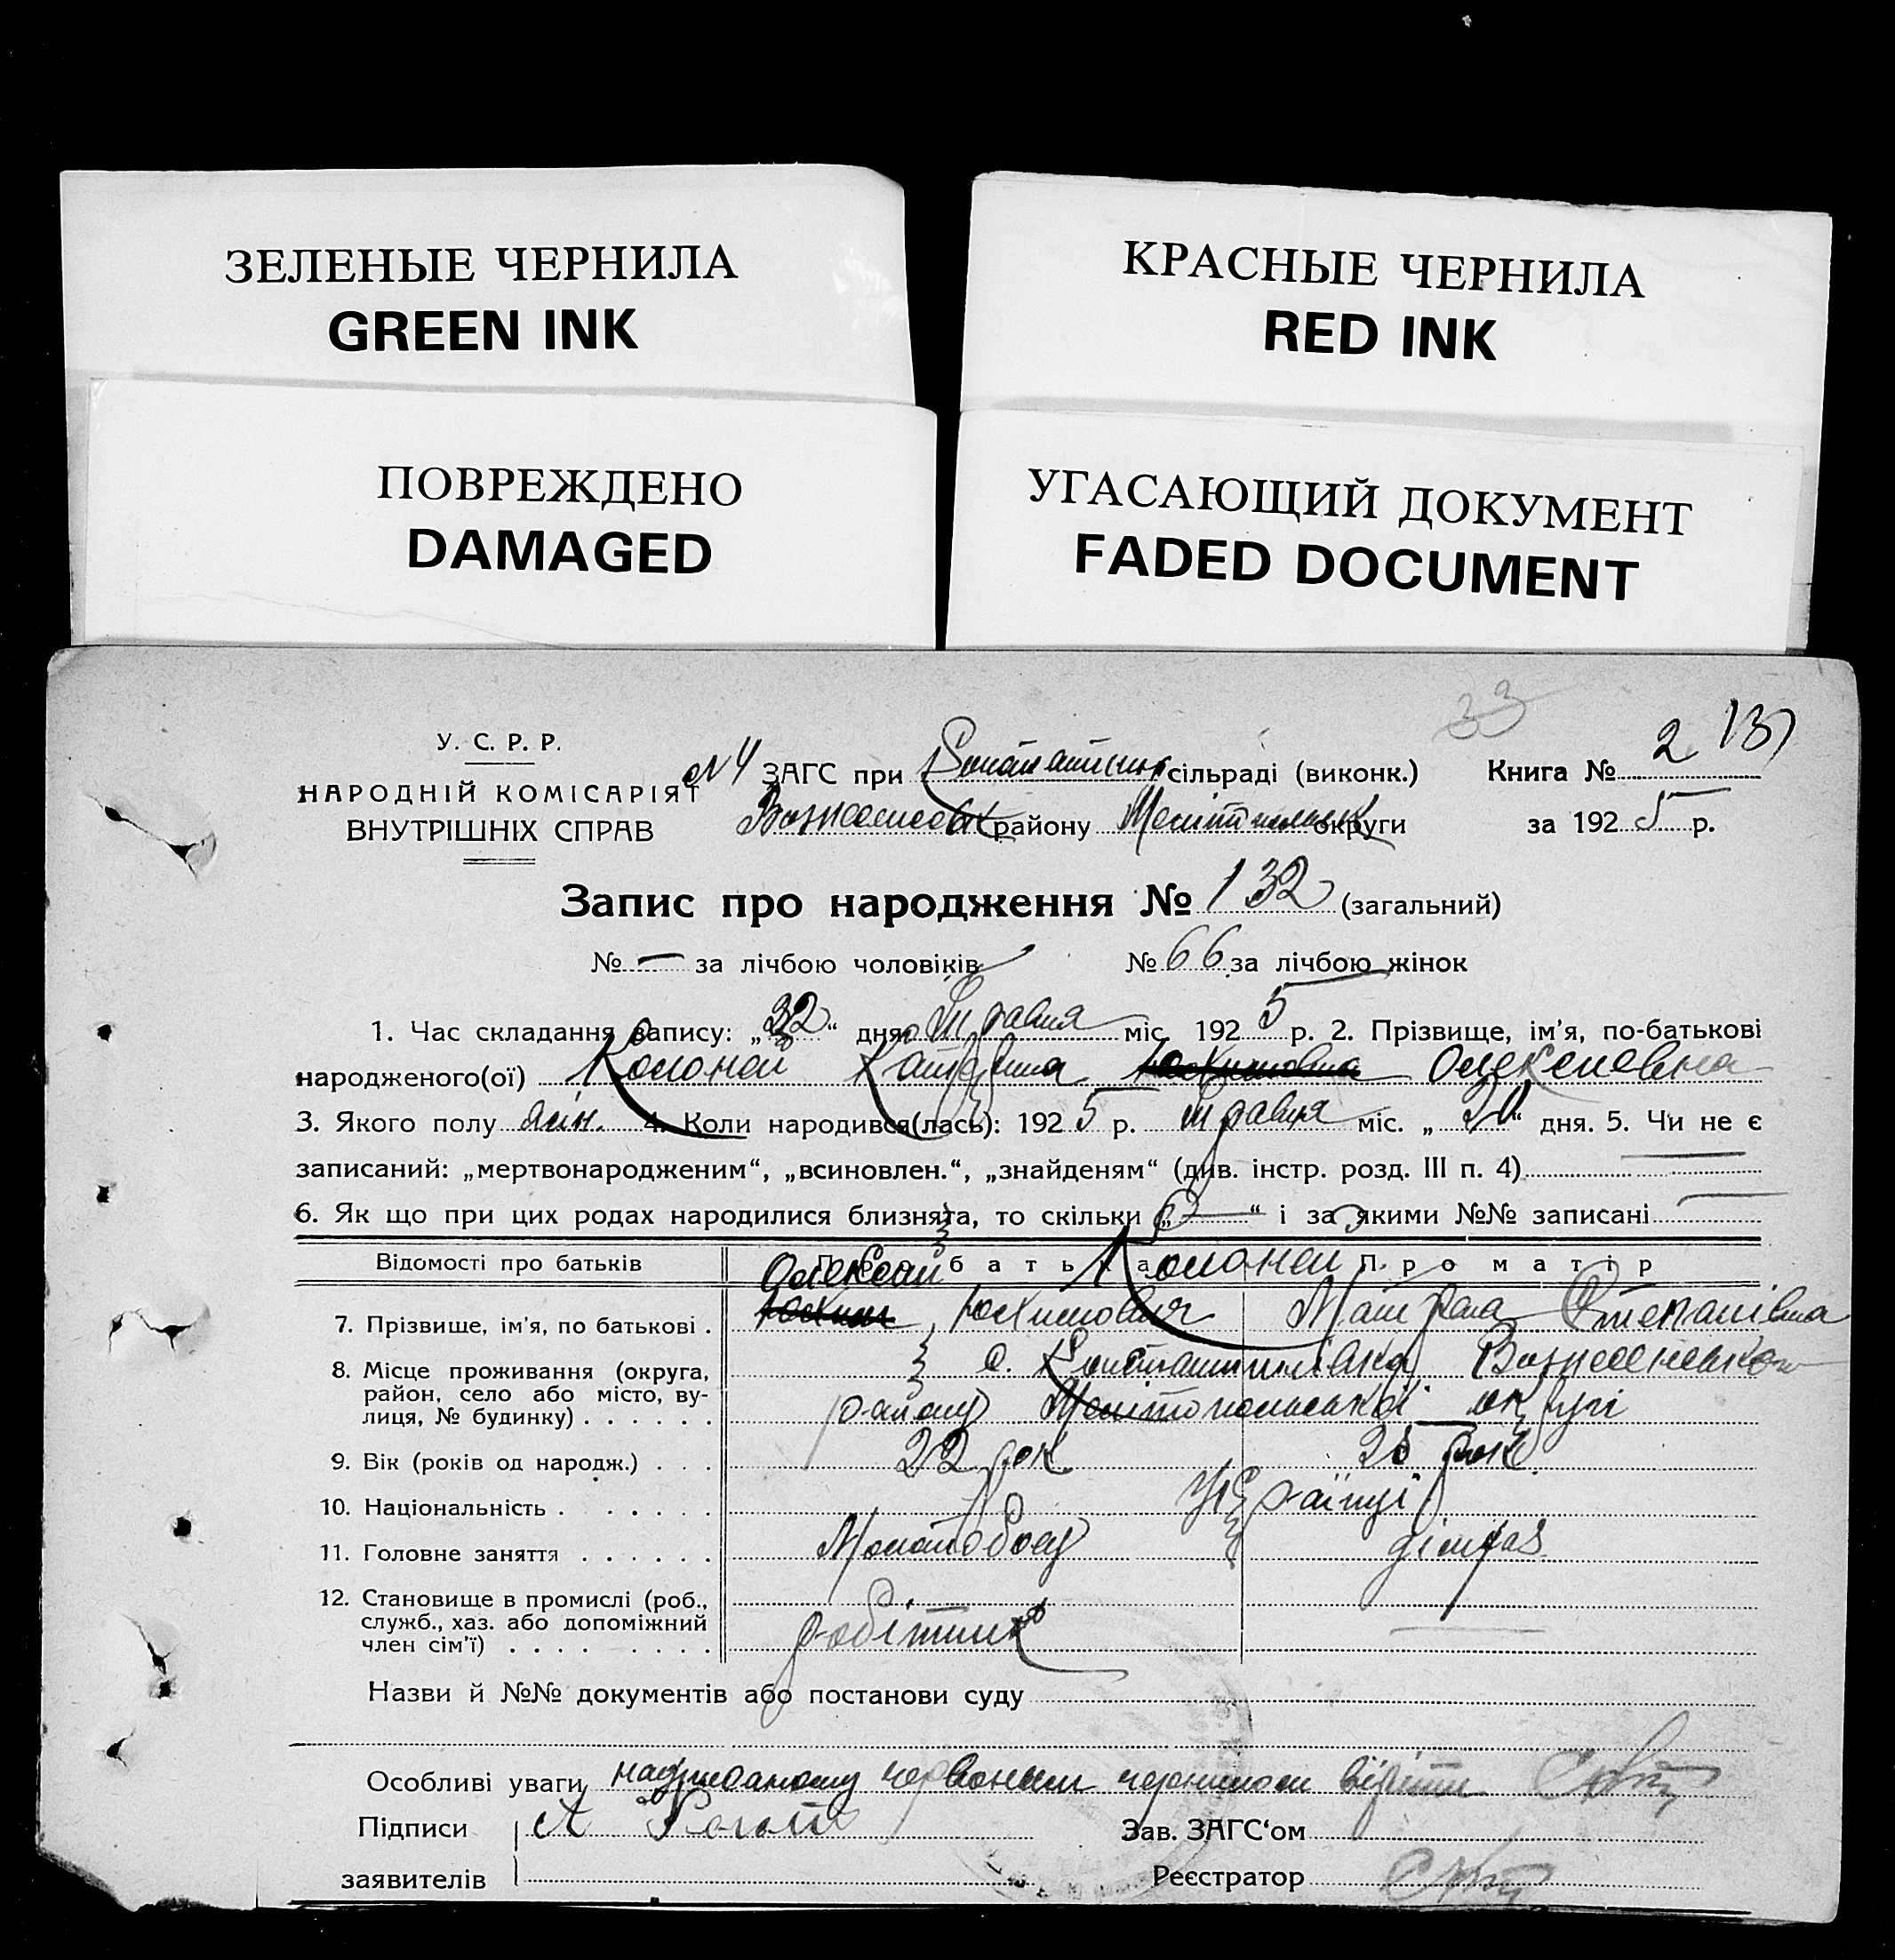 ЗЕЛЕНЫЕ ЧЕРНИЛА
GREEN INK
КРАСНЫЕ ЧЕРНИЛА
RED INK
ПОВРЕЖДЕНО
DAMAGED
УГАСАЮЩИЙ ДОКУМЕНТ
FADED DOCUMENT
33
У. С. Р. Р.
НАРОДНІЙ КОМІСАРІЯТ
ВНУТРІШНІХ СПРАВ
№ 4 ЗАГС при сільраді (виконк.) Книга № 2
району округи за 1925 р.
Запис про народження № 132 (загальний)
№ — за лічбою чоловіків № 66 за лічбою жінок
1. Час складання запису: „ “ дня Травня міс. 1925 р. 2. Прізвище, ім'я, по-батькові
народженого(ої) Колоней Катерина Олексеевна
3. Якого полу жін. 4. Коли народився(лась): 1925 р. травня міс. „20“ дня. 5. Чи не є
записаний: „мертвонародженим“, „всиновлен.“, „знайденям“ (див. інстр. розд. III п. 4)
6. Як що при цих родах народилися близнята, то скільки „ “ і за якими №№ записані
Відомості про батьків Про батька Про матір
Олексей Колонеи
7. Прізвище, ім'я, по батькові . Юхимович Степанівна
8. Місце проживання (округа, с. Константинівка
район, село або місто, ву- району Мелітопольської округи
лиця, № будинку)
9. Вік (років од народж.) 22 рок 25 рок
10. Національність Українці
11. Головне заняття
12. Становище в промислі (роб.,
служб., хаз. або допоміжний робітник
член сім'ї)
Назви й №№ документів або постанови суду
Особливі уваги червоним чернилом вірити
Підписи Зав. ЗАГС‘ом
заявителів Реєстратор